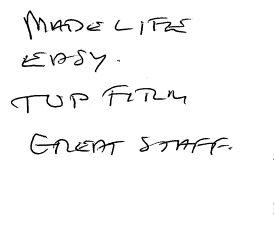 MADE LIFE
EASY.
TOP FIRM
GREAT STAFF.